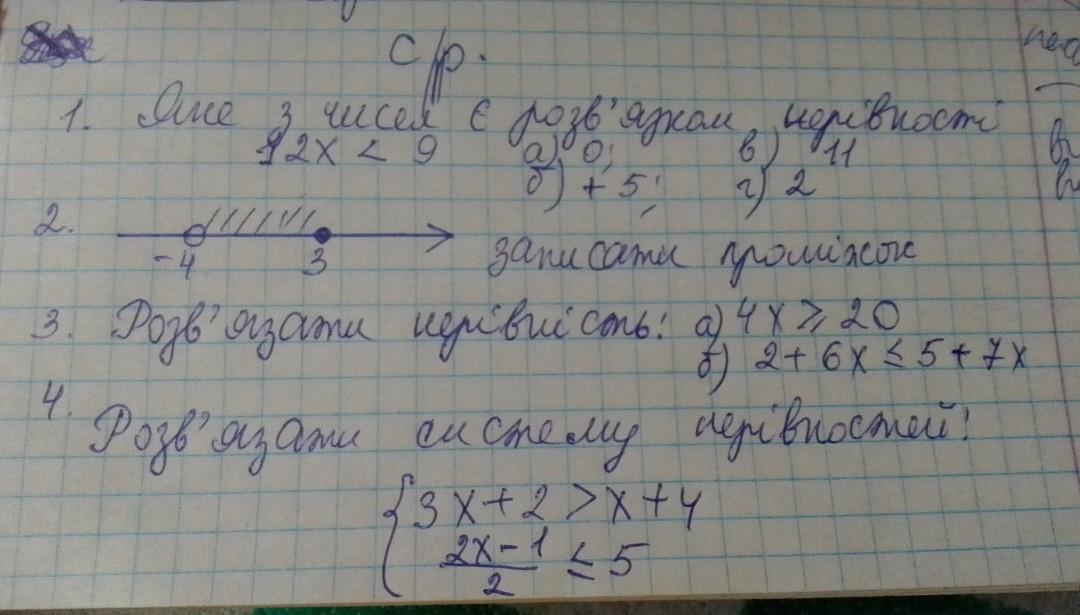 С/р.
1. Яке з чисел є розв'язком нерівності
12x < 9 а) 0; в) 11
б) + 5; г) 2
2. -4 3 записати проміжок
3. Розв'язати нерівність: а) 4x ≥ 20
б) 2 + 6x ≤ 5 + 7x
4.
Розв'язати систему нерівностей:
{ 3x + 2 > x + 4
2x - 1
2 ≤ 5